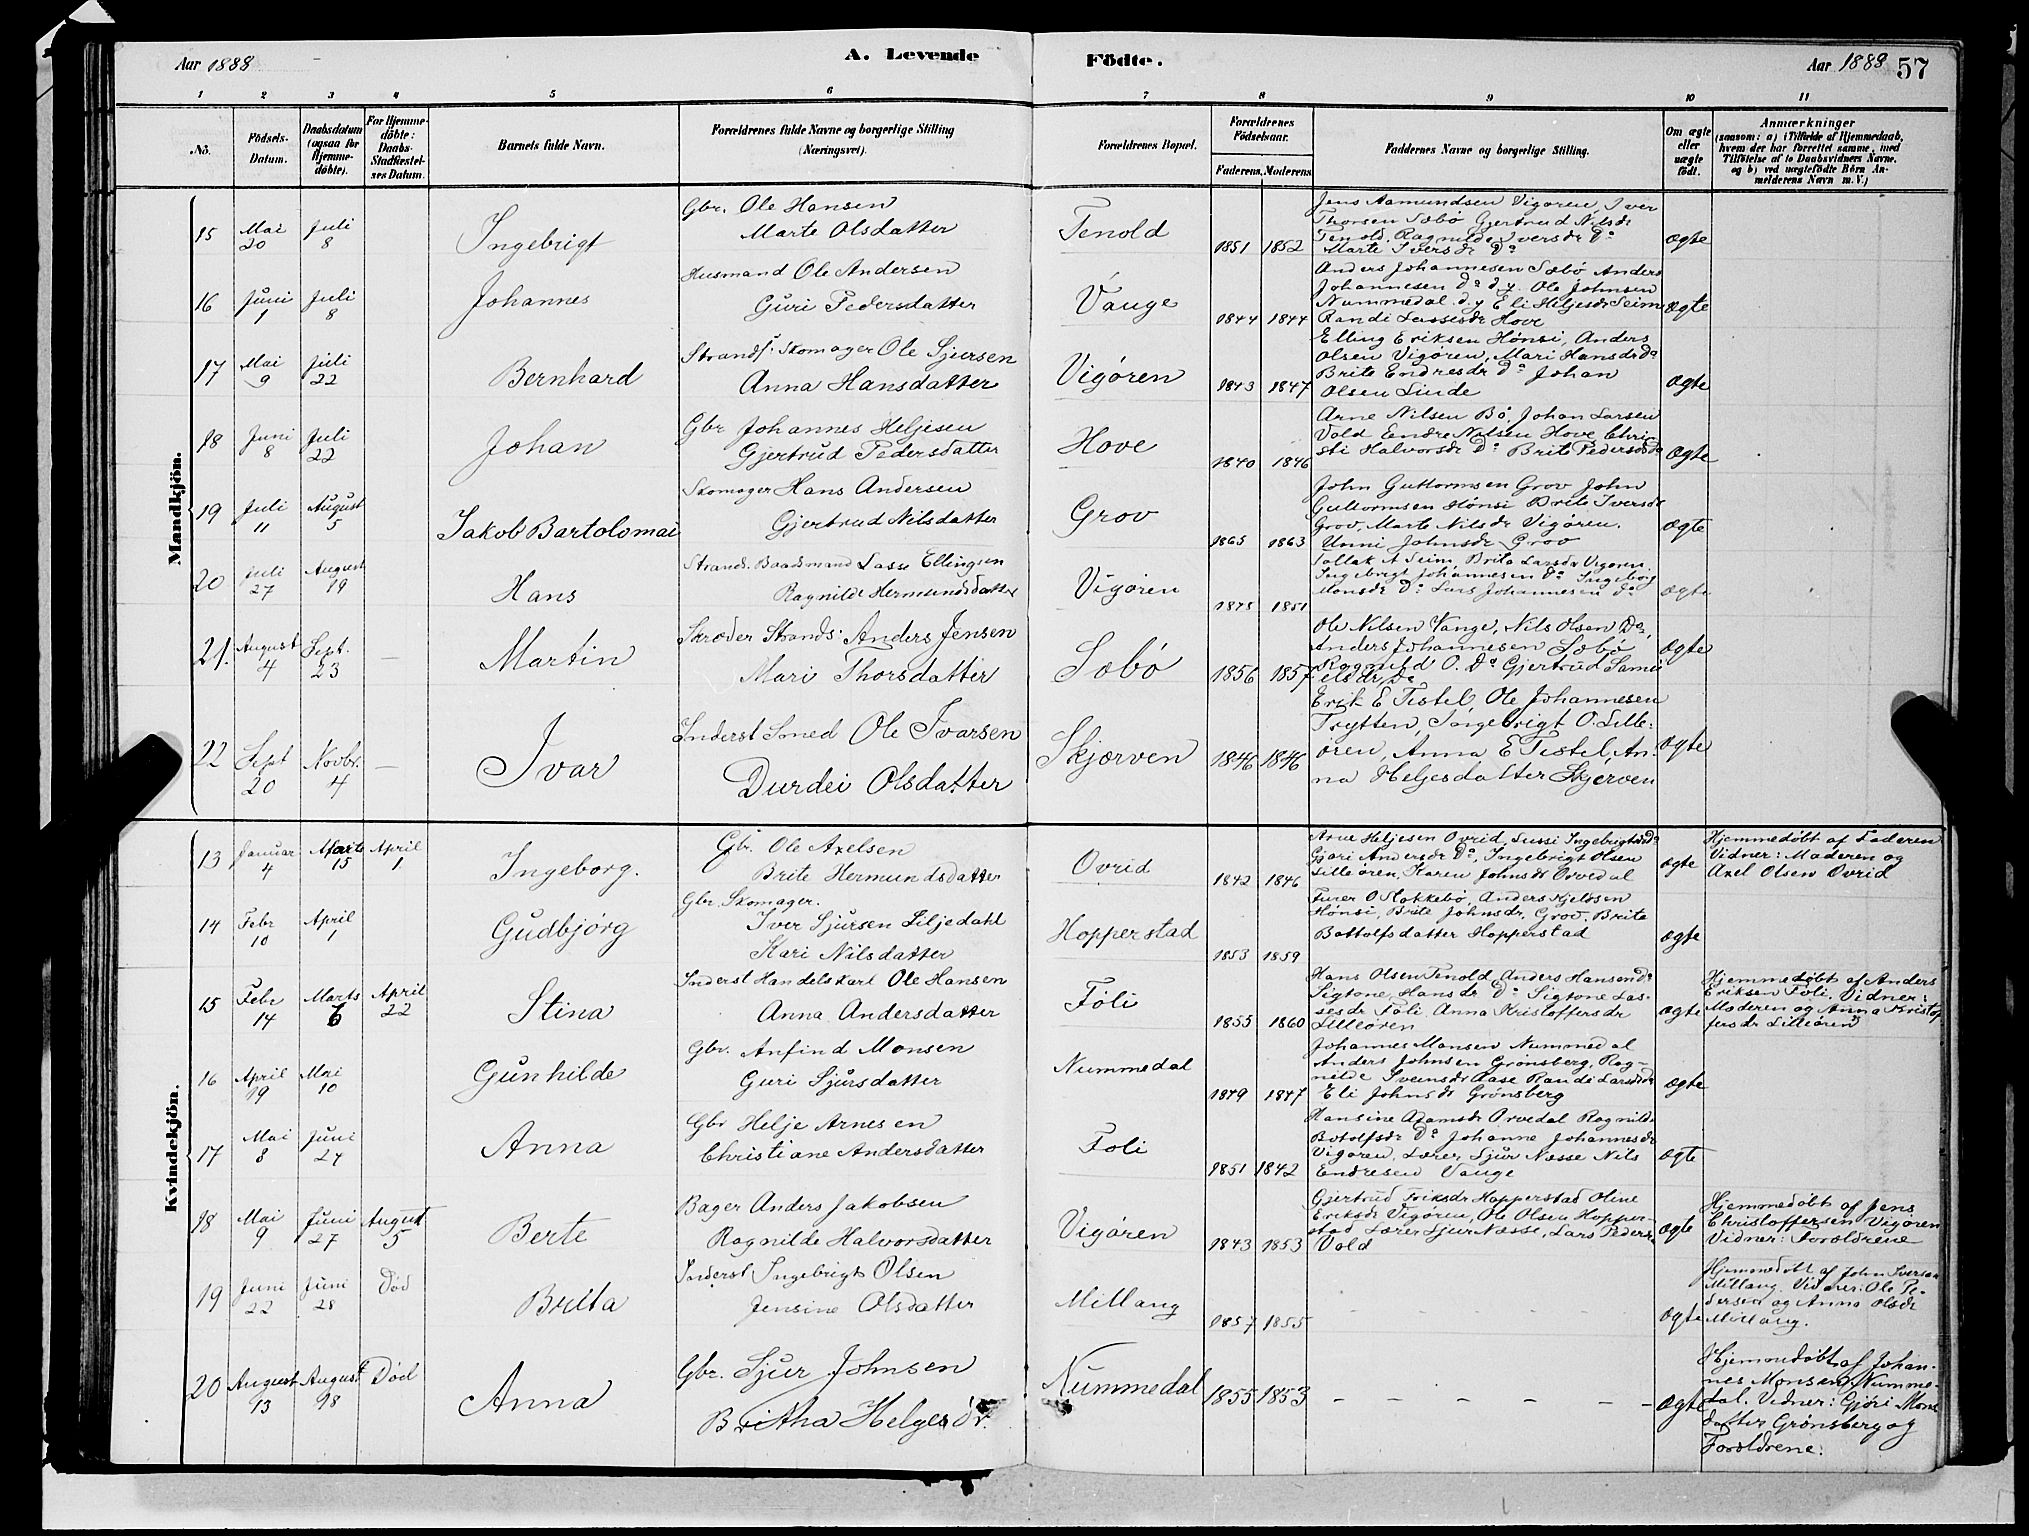 Aar 1888
A. Levende
Födte.
Aar 1888 57
1 2 3 4 5 6 7 8 9 10 11
No.
Födsels-Datum.
Daabsdatum (ogsaa for Hjemme-döbte).
For Hjemme-döbte: Daabs-Stadfæstel-ses Datum.
Barnets fulde Navn.
Forældrenes fulde Navne og borgerlige Stilling (Næringsvei).
Forældrenes Bopæl.
Forældrenes Födselsaar.
Faderens. Moderens.
Faddernes Navne og borgerlige Stilling.
Om ægte eller uægte födt.
Anmærkninger
(saasom: a) i Tilfælde af Hjemmedaab, hvem der har forrettet samme, med Tilföielse af to Daabsvidners Navne, og b) ved uægtefödte Börn An-melderens Navn m. V.)
Mandkjön.
15 Mai 20 Juli 8 Ingebrigt
Gbr. Ole Hansen
Marte Olsdatter
Tenold 1851 1852
Jens Aamundsen Vigøren Iver
Thorsen Sæbø Gjertrud Nilsdr
Tenold, Ragnilde Iversdr Do
Marte Iversdr Do
ægte
16 Juni 1 Juli 8 Johannes
Husmand Ole Andersen
Guri Pedersdatter
Vange 1844 1844
Anders Johannesen Sæbø Anders
Johannesen Do d.y. Ole Johnsen
Nummedal d.y Eli Heljesdr Seim
Randi Lassesdr Hove
ægte
17 Mai 9 Juli 22 Bernhard
Strands. Skomager Ole Sjursen
Anna Hansdatter
Vigøren 1843 1847
Elling Eriksen Hønsi, Anders
Olsen Vigøren, Mari Hansdr Do
Brite Endresdr Do Johan
Olsen Linde
ægte
18 Juni 8 Juli 22 Johan
Gbr Johannes Heljesen
Gjertrud Pedersdatter
Hove 1840 1846
Arne Nilsen Bø, Johan Larsen
Vold Endre Nilsen Hove Chri
sti Halvorsdr Do Brite Pedersdr Do
ægte
19 Juli 11 August 5 Jakob Bartolomai
Skomager Hans Andersen
Gjertrud Nilsdatter
Grov 1865 1863
John Guttormsen Grov John
Guttormsen Hønsi Brite Iversdr
Grov, Marte Nilsdr Vigøren.
Unni Johnsdr Grov
ægte
20 Juli 27 August 19 Hans
Strands. Baadsmand Lasse Ellingsen
Ragnilde Hermundsdatter
Vigøren 1851
Tollak A Seim, Brita Larsdr Vigøren
Ingebrigt Johannesen Do Ingeborg
Monsdr Do Lars Johannesen Do
ægte
21. August 4 Sept. 23 — Martin
Skræder Strands: Anders Jensen
Mari Thorsdatter
Sæbø 1856 1857
Ole Nilsen Vange, Nils Olsen Do,
Anders Johannesen Sæbø
Ragnild O. Do Gjertrud Samu
elsdr Do
ægte
22 Sept 20 Novbr. 4 — Ivar
Inderst Smed Ole Ivarsen
Durdei Olsdatter
Skjærven 1846 1846
Erik E Tistel, Ole Johannesen
Trytten, Ingebrigt O. Lille:
øren, Anna E Tistel, An:
na Heljesdatter Skjerven
ægte
Kvindekjön.
13 Januar 4 Marts 15 April 1 Ingeborg.
Gbr. Ole Axelsen
Brite Hermundsdatter
Ovrid 1842 1846
Arne Heljesen Ovrid, Sussi Ingebrigtsdr Do
Gjøri Andersdr Do, Ingebrigt Olsen
Lilleøren, Karen Johnsdr Orvedal
ægte
Hjemmedøbt af Faderen
Vidner: Moderen og
Axel Olsen Ovrid
14 Febr 10 April 1 Gudbjörg
Gbr. Skomager.
Iver Sjursen Liljedahl
Kari Nilsdatter
Hopperstad 1853 1859
Furer O Flokkebø, Anders Kjeldsen
Hønsi, Brite Johnsdr, Grov. Brite
Bottolfsdatter Hopperstad
ægte
15 Febr 14 Marts 6 April 22 Stina
Inderst Handelskarl Ole Hansen
Anna Andersdatter
Føli 1855 1860
Hans Olsen Tenold, Anders Hansen Do
Sigtone, Hansdr Do Sigtone Las-
sesdr Føli Anna Kristoffersdr
Lilleøren
ægte
Hjemmedøbt af Anders
Eriksen Føli. Vidner:
Moderen og Anna Kristof
fersdr Lilleøren
16 April 19 Mai 10 Gunhilde
Gbr. Anfind Monsen
Guri Sjursdatter
Nummedal 1849 1847
Johannes Monsen Nummedal
Anders Johnsen Grønsberg, Rag-
nilde Sveinsdr Aase Randi Larsdr Do
Eli Johnsdr Grønsberg
ægte
17 Mai 8 Juni 24 Anna
Gbr Helje Arnesen
Christiane Andersdatter
Føli 1851 1842
Hansine Adamsdr Orvedal Ragnilde
Botolfsdr Do Johanne Johannesdr
Vigøren, Lærer Sjur Næsse Nils
Endresen Vange
ægte
18 Mai 9 Juni 27 August 5 Berte
Bager Anders Jakobsen
Ragnilde Halvorsdatter
Vigøren 1843 1853
Gjertrud Eriksdr Hopperstad Oline
Eriksdr Vigøren, Ole Olsen Hopper-
stad Lærer Sjur Næsse, Lars Peders
Vold
ægte
Hjemmedøbt af Jens
Christoffersen Vigøren
Vidner: Forældrene
19 Juni 22 Juni 28 Død Brita
Inderst Ingebrigt Olsen
Jensine Olsdatter
Millang 1857 1855
— — — — — —
ægte
Hjemmedøbt af John Iversen
Millang. Vidner: Ole Pe-
dersen og Anna Olsdr
Millang.
20 August 13 August 18 Død Anna
Gbr. Sjur Johnsen
Britha Helgesdr.
Nummedal 1855 1853
— — — — — —
ægte
Hjemmedøbt af Johan-
nes Monsen Numme-
dal. Vidner: Gjøri Mons
datter Grønsberg og
Forældrene.